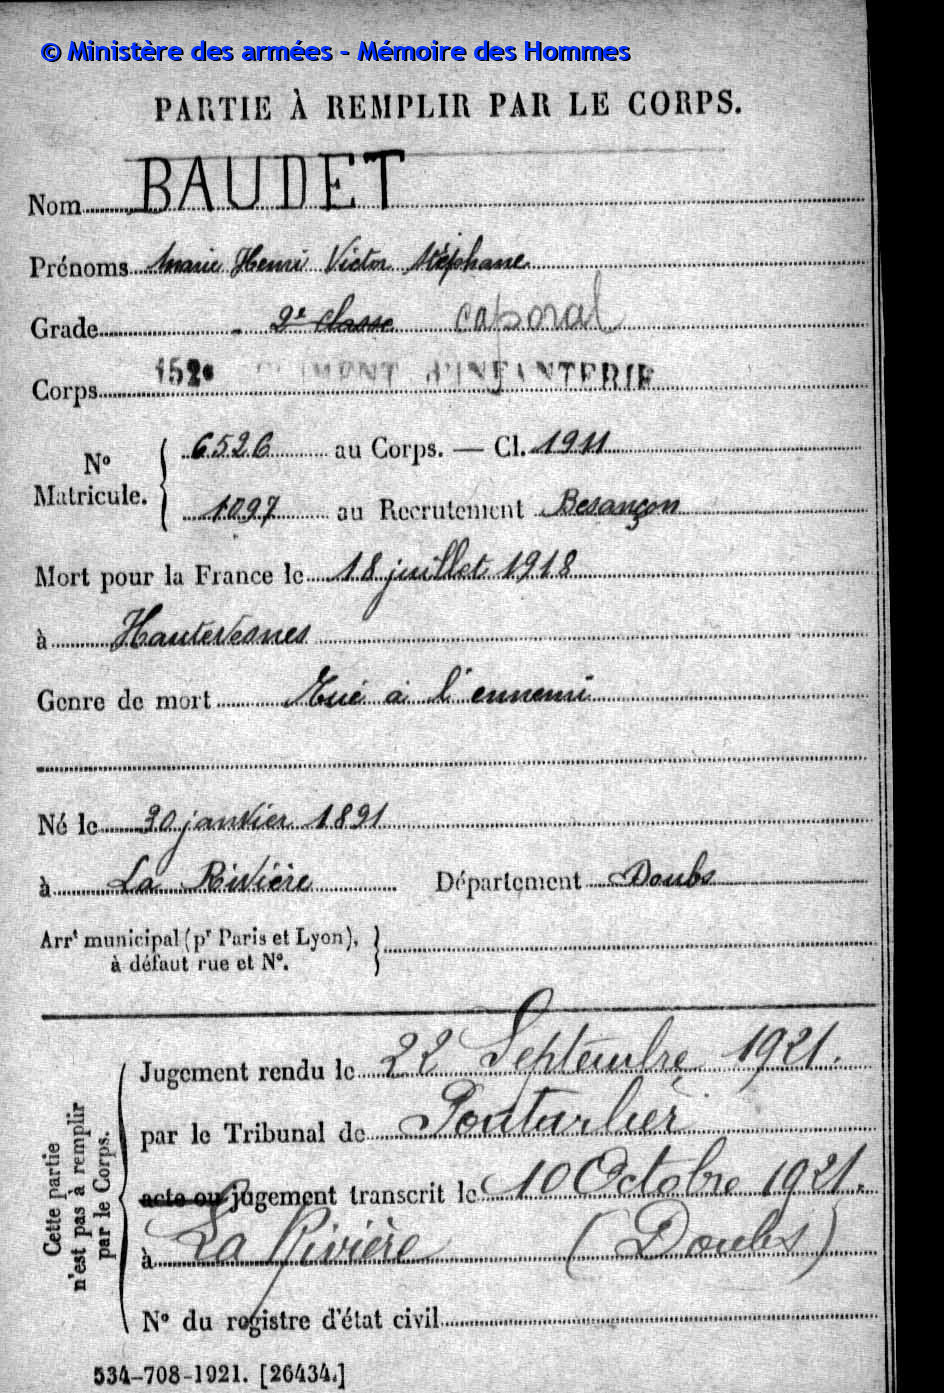 © Ministère des armées - Mémoire des Hommes
PARTIE À REMPLIR PAR LE CORPS.
Nom BAUDET
Prénoms Marie Henri Victor Stéphane
Grade 2e classe caporal
Corps 152e RÉGIMENT D'INFANTERIE
No Matricule. { 6526 au Corps. — Cl. 1911
1097 au Recrutement Besançon
Mort pour la France le 18 juillet 1918
à Hautevesnes
Genre de mort Tué à l'ennemi
Né le 30 janvier 1891
à La Rivière Département Doubs
Arrt municipal (pr Paris et Lyon), }
à défaut rue et No.
Cette partie n'est pas à remplir par le Corps.
Jugement rendu le 22 Septembre 1921.
par le Tribunal de Pontarlier
acte ou jugement transcrit le 10 Octobre 1921.
à La Rivière (Doubs)
No du registre d'état civil
534-708-1921. [26434.]